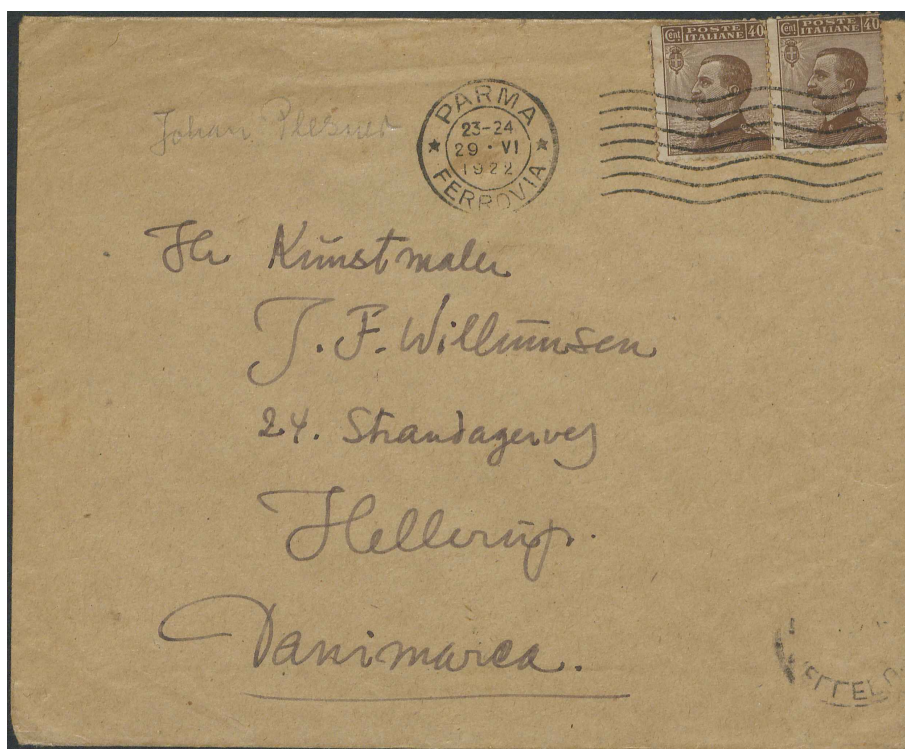 Cent POSTE ITALIANE 40
Cent POSTE ITALIANE 40
PARMA
23-24
29 · VI
1922
FERROVIA
Johan Plesner
Hr Kunstmaler
J. F. Willumsen
24. Strandagervej
Hellerup.
Danimarca.